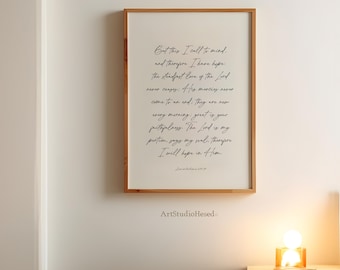 But this I call to mind,
and therefore I have hope:
the steadfast love of the Lord
never ceases; His mercies never
come to an end; they are new
every morning; great is your
faithfulness. The Lord is my
portion, says my soul, therefore
I will hope in Him.
ArtStudioHesed